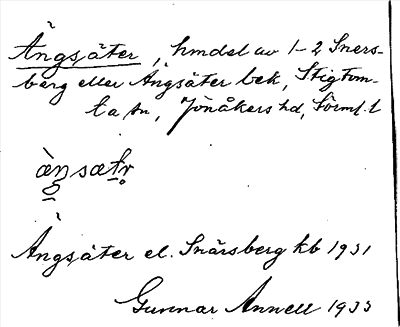 Ängsäter, hmdel av 1-2 Sners-
berg eller Ängsäter bek, Stigtom-
ta sn, Jönåkers hd, Södml. l
Ängsäter el. Snärsberg kb 1931
Gunnar Annell 1933